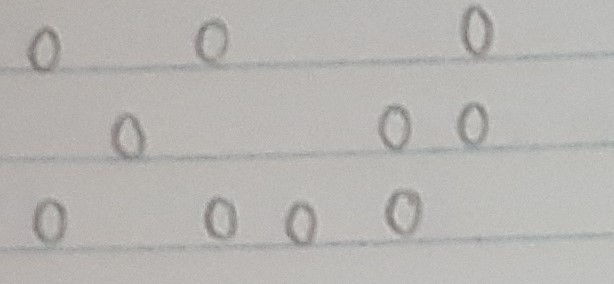 0 0 0
0 0 0
0 0 0 0